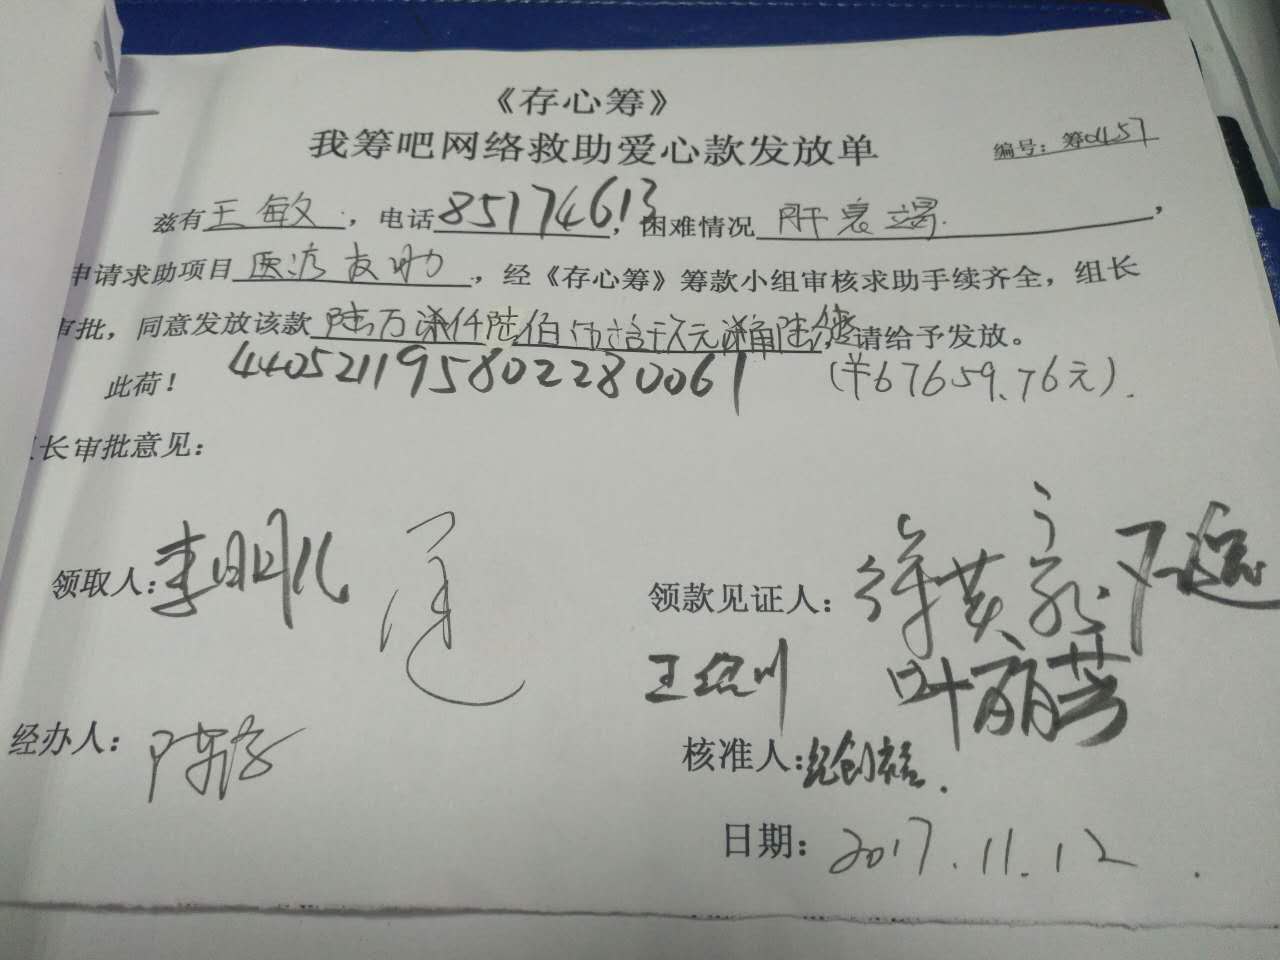 《存心筹》
我筹吧网络救助爱心款发放单
编号：筹0457
兹有王敏，电话85174613，困难情况 肝衰竭，
申请求助项目 医疗救助，经《存心筹》筹款小组审核求助手续齐全，组长
审批，同意发放该款 陆万柒仟陆佰伍拾玖元柒角陆分 请给予发放。
此荷！ 440521195802280061 (￥67659.76元).
长审批意见：
领取人：李明儿
领款见证人：
王绍川 叶丽芳
经办人：
核准人：
日期：2017.11.12